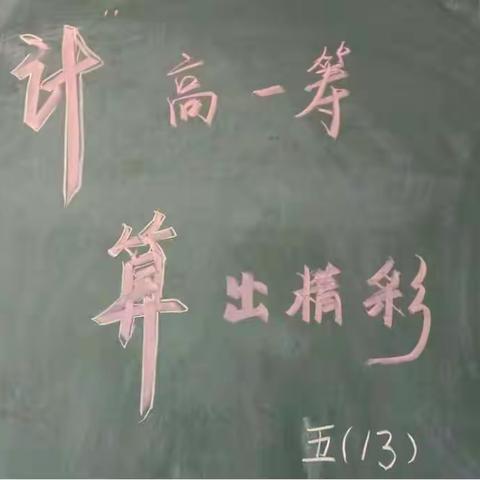 “计”高一筹
算出精彩
五(13)